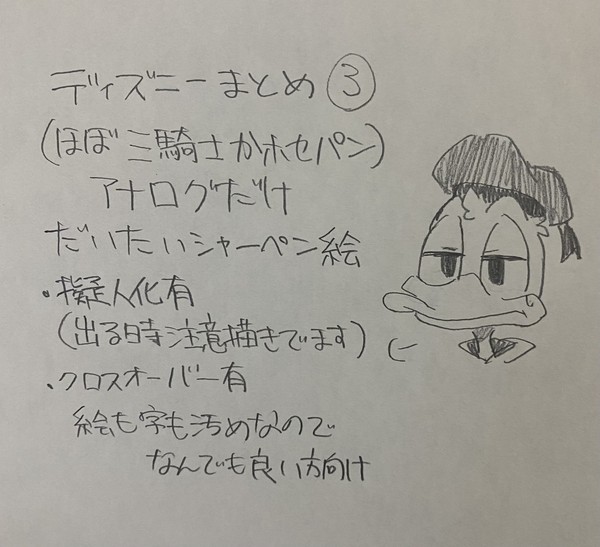 ディズニーまとめ③
(ほぼ三騎士かホセパン)
アナログだけ
だいたいシャーペン絵
・擬人化有
(出る時注意描きでます)
・クロスオーバー有
絵も字も汚めなので
なんでも良い方向け